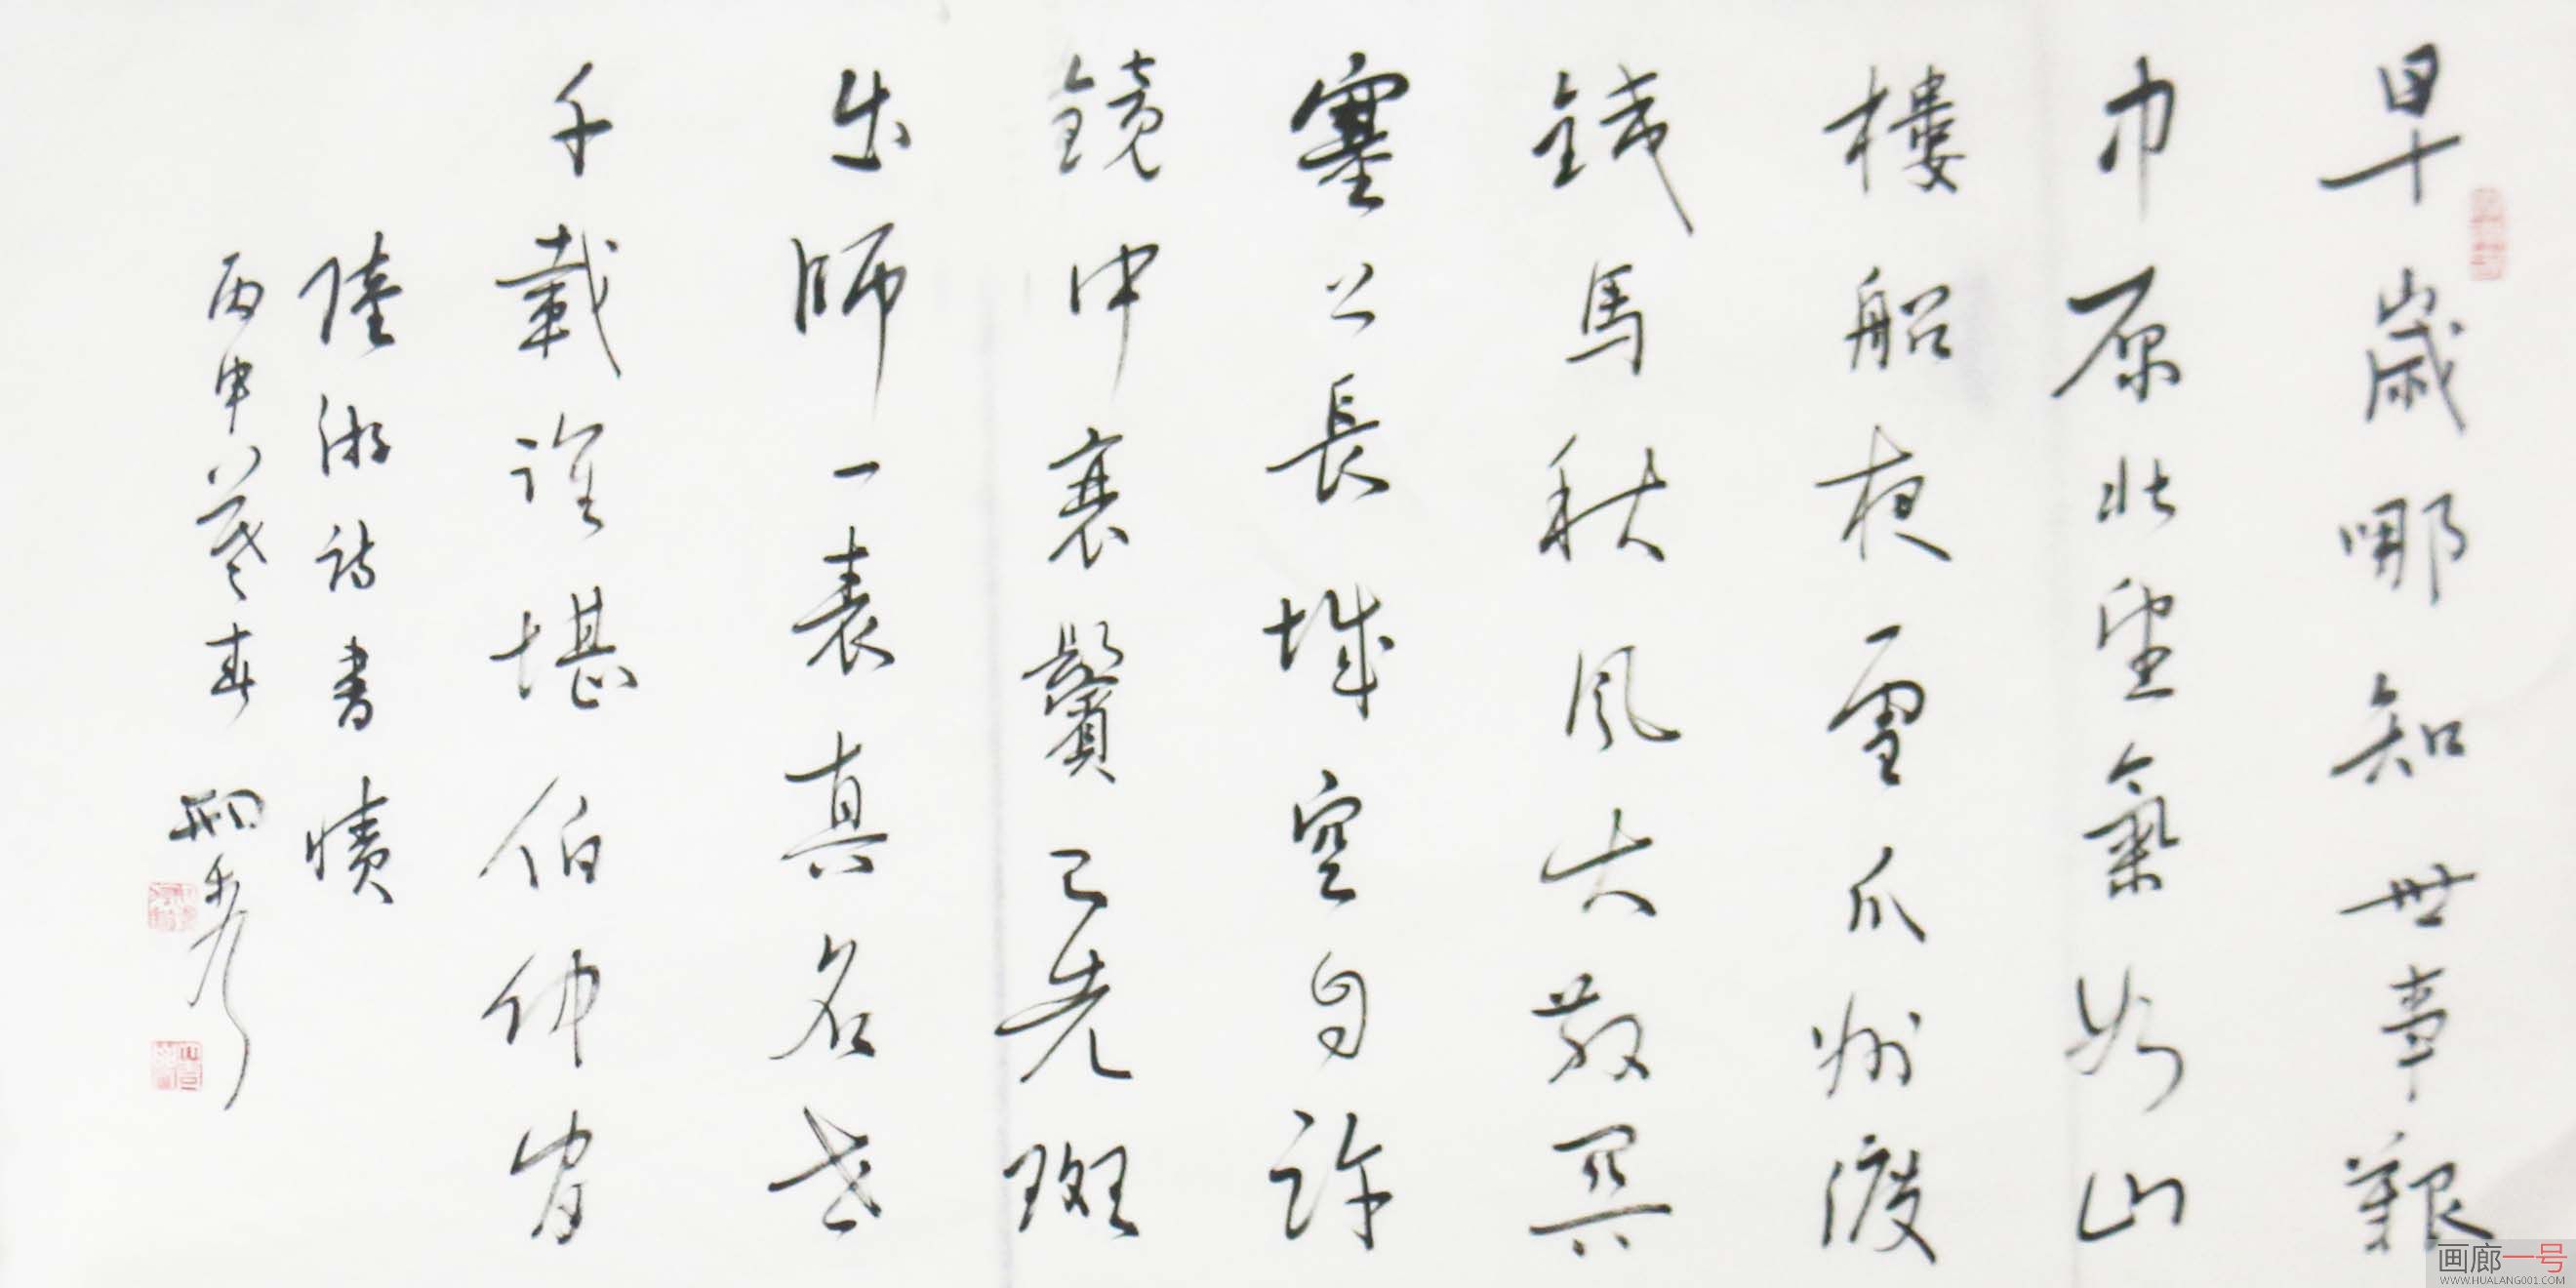 早歲哪知世事艱
中原北望氣如山
樓船夜雪瓜州渡
鐵馬秋風大散關
塞上長城空自許
鏡中衰鬢已先斑
出師一表真名世
千載誰堪伯仲間
陸游詩書憤
丙申暮春
画廊一号
WWW.HUALANG001.COM